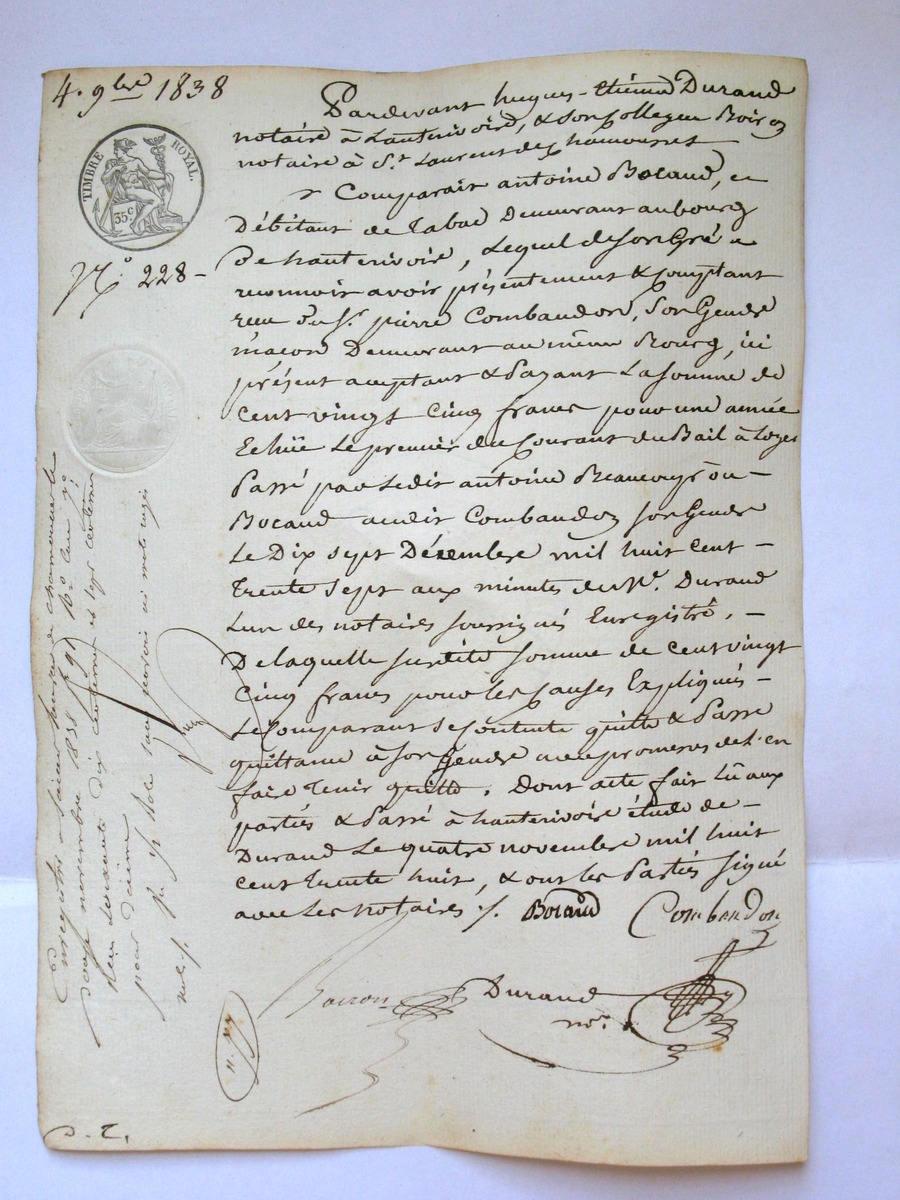 4. 9bre 1838
TIMBRE ROYAL.
35 c
N.° 228 -
Pardevant hugues-Etienne Durand
notaire à Lauterivoire, & Son Collegue Boiron
notaire à St Laurent de chamousset
Comparait antoine Bocaud,
Débitant de Tabac Demeurant au bourg
De hauterivoire, Lequel de Son Gré
reconnoit avoir présentement & comptant
reçu du Sr. pierre Combaudon, Son Gendre
maçon Demeurant au même Bourg, ici
présent acceptant & Payant La Somme de
Cent vingt Cinq francs pour une année
Echüe Le premier du Courant du Bail à loyer
Passé par Ledit antoine Beaucaud ou -
Bocaud audit Combaudon Son Gendre
Le Dix Sept Décembre mil huit Cent -
Trente Sept aux minutes du Me. Durand
Lun des notaires Soussignés Enregistré, -
De laquelle Susdite Somme de Cent vingt
Cinq francs pour les Causes Expliqués -
Le Comparant Se Contente quitte & Passe
quittance à Son Gendre avec promesse de l'en
faire Tenir quitte. Dont acte fait Lû aux
parties & Passé à hauterivoire étude de -
Durand Le quatre novembre mil huit
Cent Trente huit, & ont les Parties Signé
avec Les notaires ./. Bocaud Combaudon
Boiron Durand
nre
Enregistré à Saint Laurent de chamousset le
douze novembre 1838 fo 91 Ro
deux dix centimes
pour dixme
mots rayés
nuls ./.
D. T.